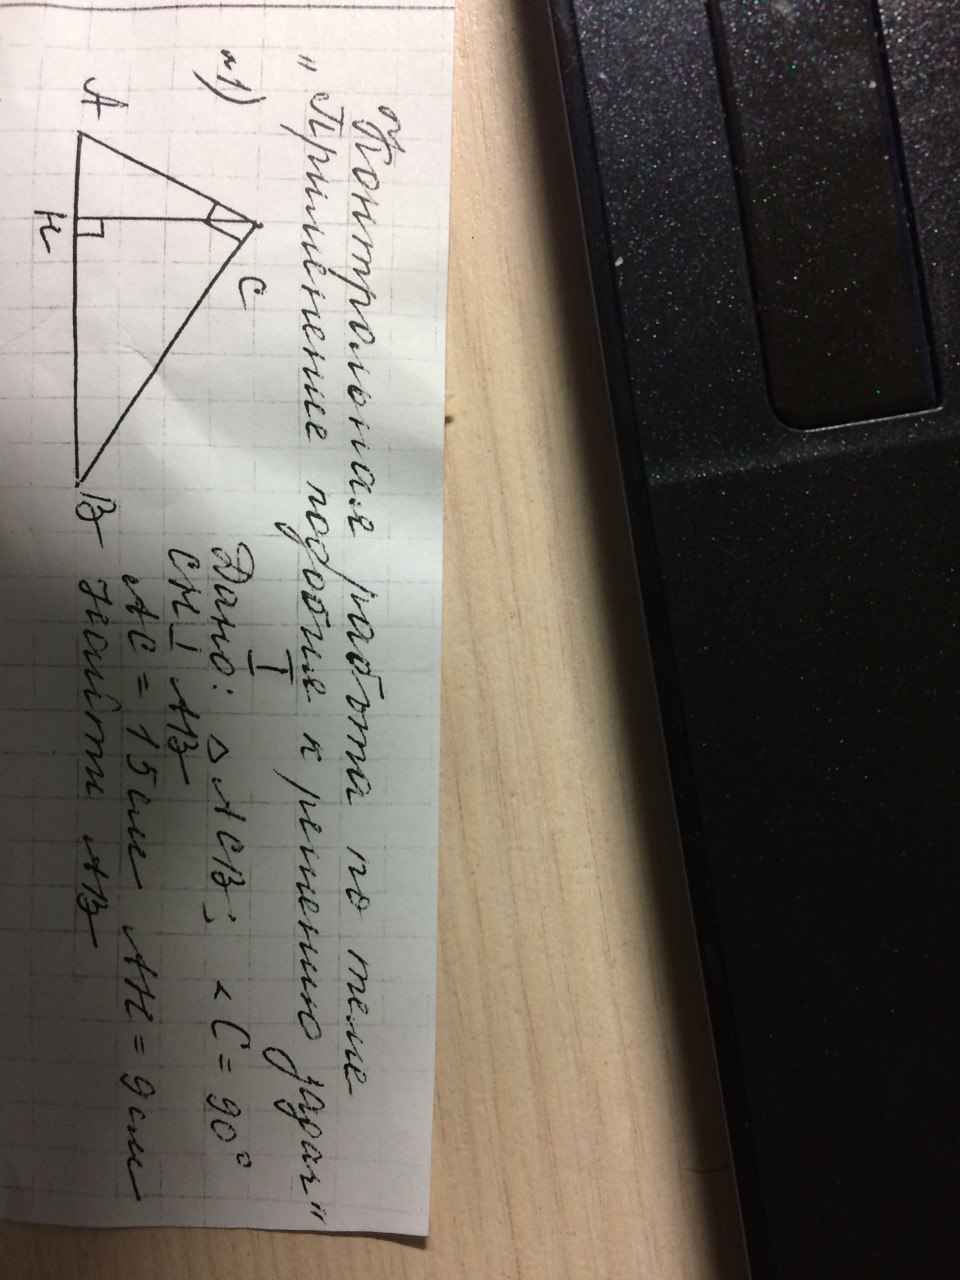 Контрольная работа по теме
"Применение подобия к решению задач"
I
№1)
Дано: △ ACB; < C = 90°
CH ⊥ AB
AC = 15 см AH = 9 см
Найти AB
A
C
H
B